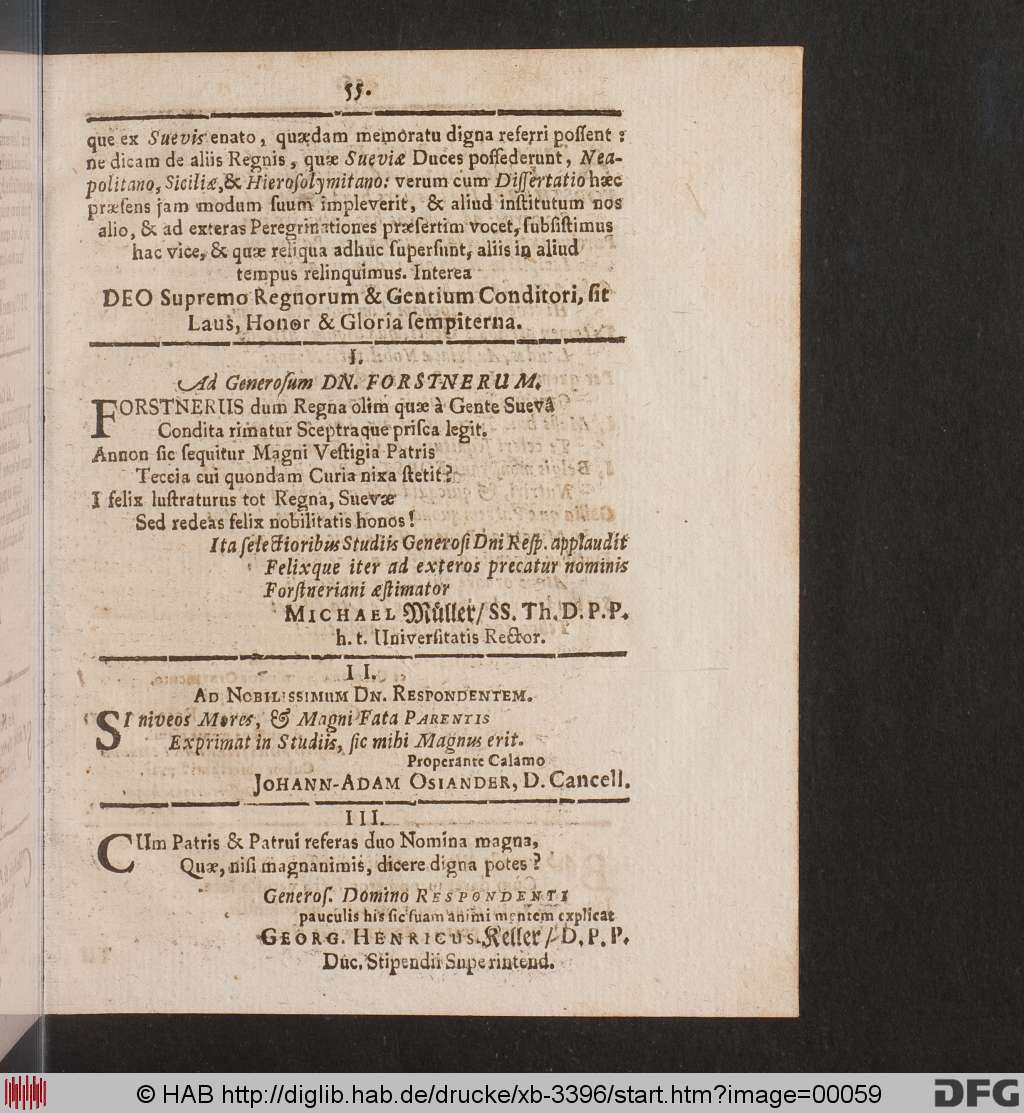 55.
que ex Suevis enato, quædam memoratu digna referri poſſent :
ne dicam de aliis Regnis, quæ Sueviæ Duces poſſederunt, Nea-
politano, Siciliæ, & Hieroſolymitano: verum cum Diſſertatio hæc
præſens jam modum ſuum impleverit, & aliud inſtitutum nos
alio, & ad exteras Peregrinationes præſertim vocet, ſubſiſtimus
hac vice, & quæ reliqua adhuc ſuperſunt, aliis in aliud
tempus relinquimus. Interea
DEO Supremo Regnorum & Gentium Conditori, ſit
Laus, Honor & Gloria ſempiterna.
I.
Ad Generoſum DN. FORSTNERUM.
FORSTNERUS dum Regna olim quæ à Gente Suevâ
Condita rimatur Sceptraque priſca legit.
Annon ſic ſequitur Magni Veſtigia Patris
Teccia cui quondam Curia nixa ſtetit?
I felix luſtraturus tot Regna, Suevæ
Sed redeas felix nobilitatis honos!
Ita ſelectioribus Studiis Generoſi Dni Reſp. applaudit
Felixque iter ad exteros precatur nominis
Forſtneriani æſtimator
MICHAEL Müller/ SS. Th. D. P. P.
h. t. Univerſitatis Rector.
II.
AD NOBILISSIMUM DN. RESPONDENTEM.
SI niveos Mores, & Magni Fata PARENTIS
Exprimat in Studiis, ſic mihi Magnus erit.
Properante Calamo
JOHANN-ADAM OSIANDER, D. Cancell.
III.
CUm Patris & Patrui referas duo Nomina magna,
Quæ, niſi magnanimis, dicere digna potes?
Generoſ. Domino RESPONDENTI
pauculis his ſic ſuam animi mentem explicat
GEORG. HENRICUS. Keller/ D. P. P.
Duc. Stipendii Superintend.
© HAB http://diglib.hab.de/drucke/xb-3396/start.htm?image=00059
DFG